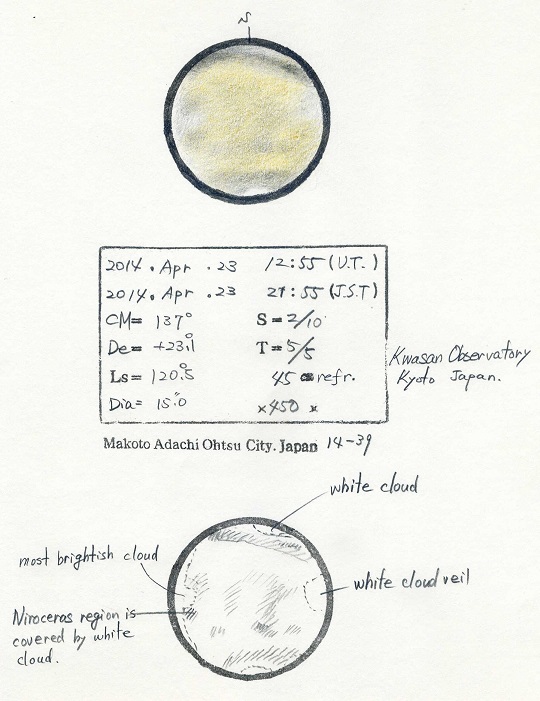 N
2014. Apr. 23 12:55 (U.T.)
2014. Apr. 23 21:55 (J.S.T)
CM= 137° S=2/10
De= +23°.1 T=5/5
Ls= 120°.5 45 refr.
Dia= 15".0 ×450 ×
Kwasan Observatory
Kyoto Japan.
Makoto Adachi Ohtsu City. Japan 14-39
white cloud
most brightish cloud
white cloud veil
Niroceros region is
covered by white
cloud.